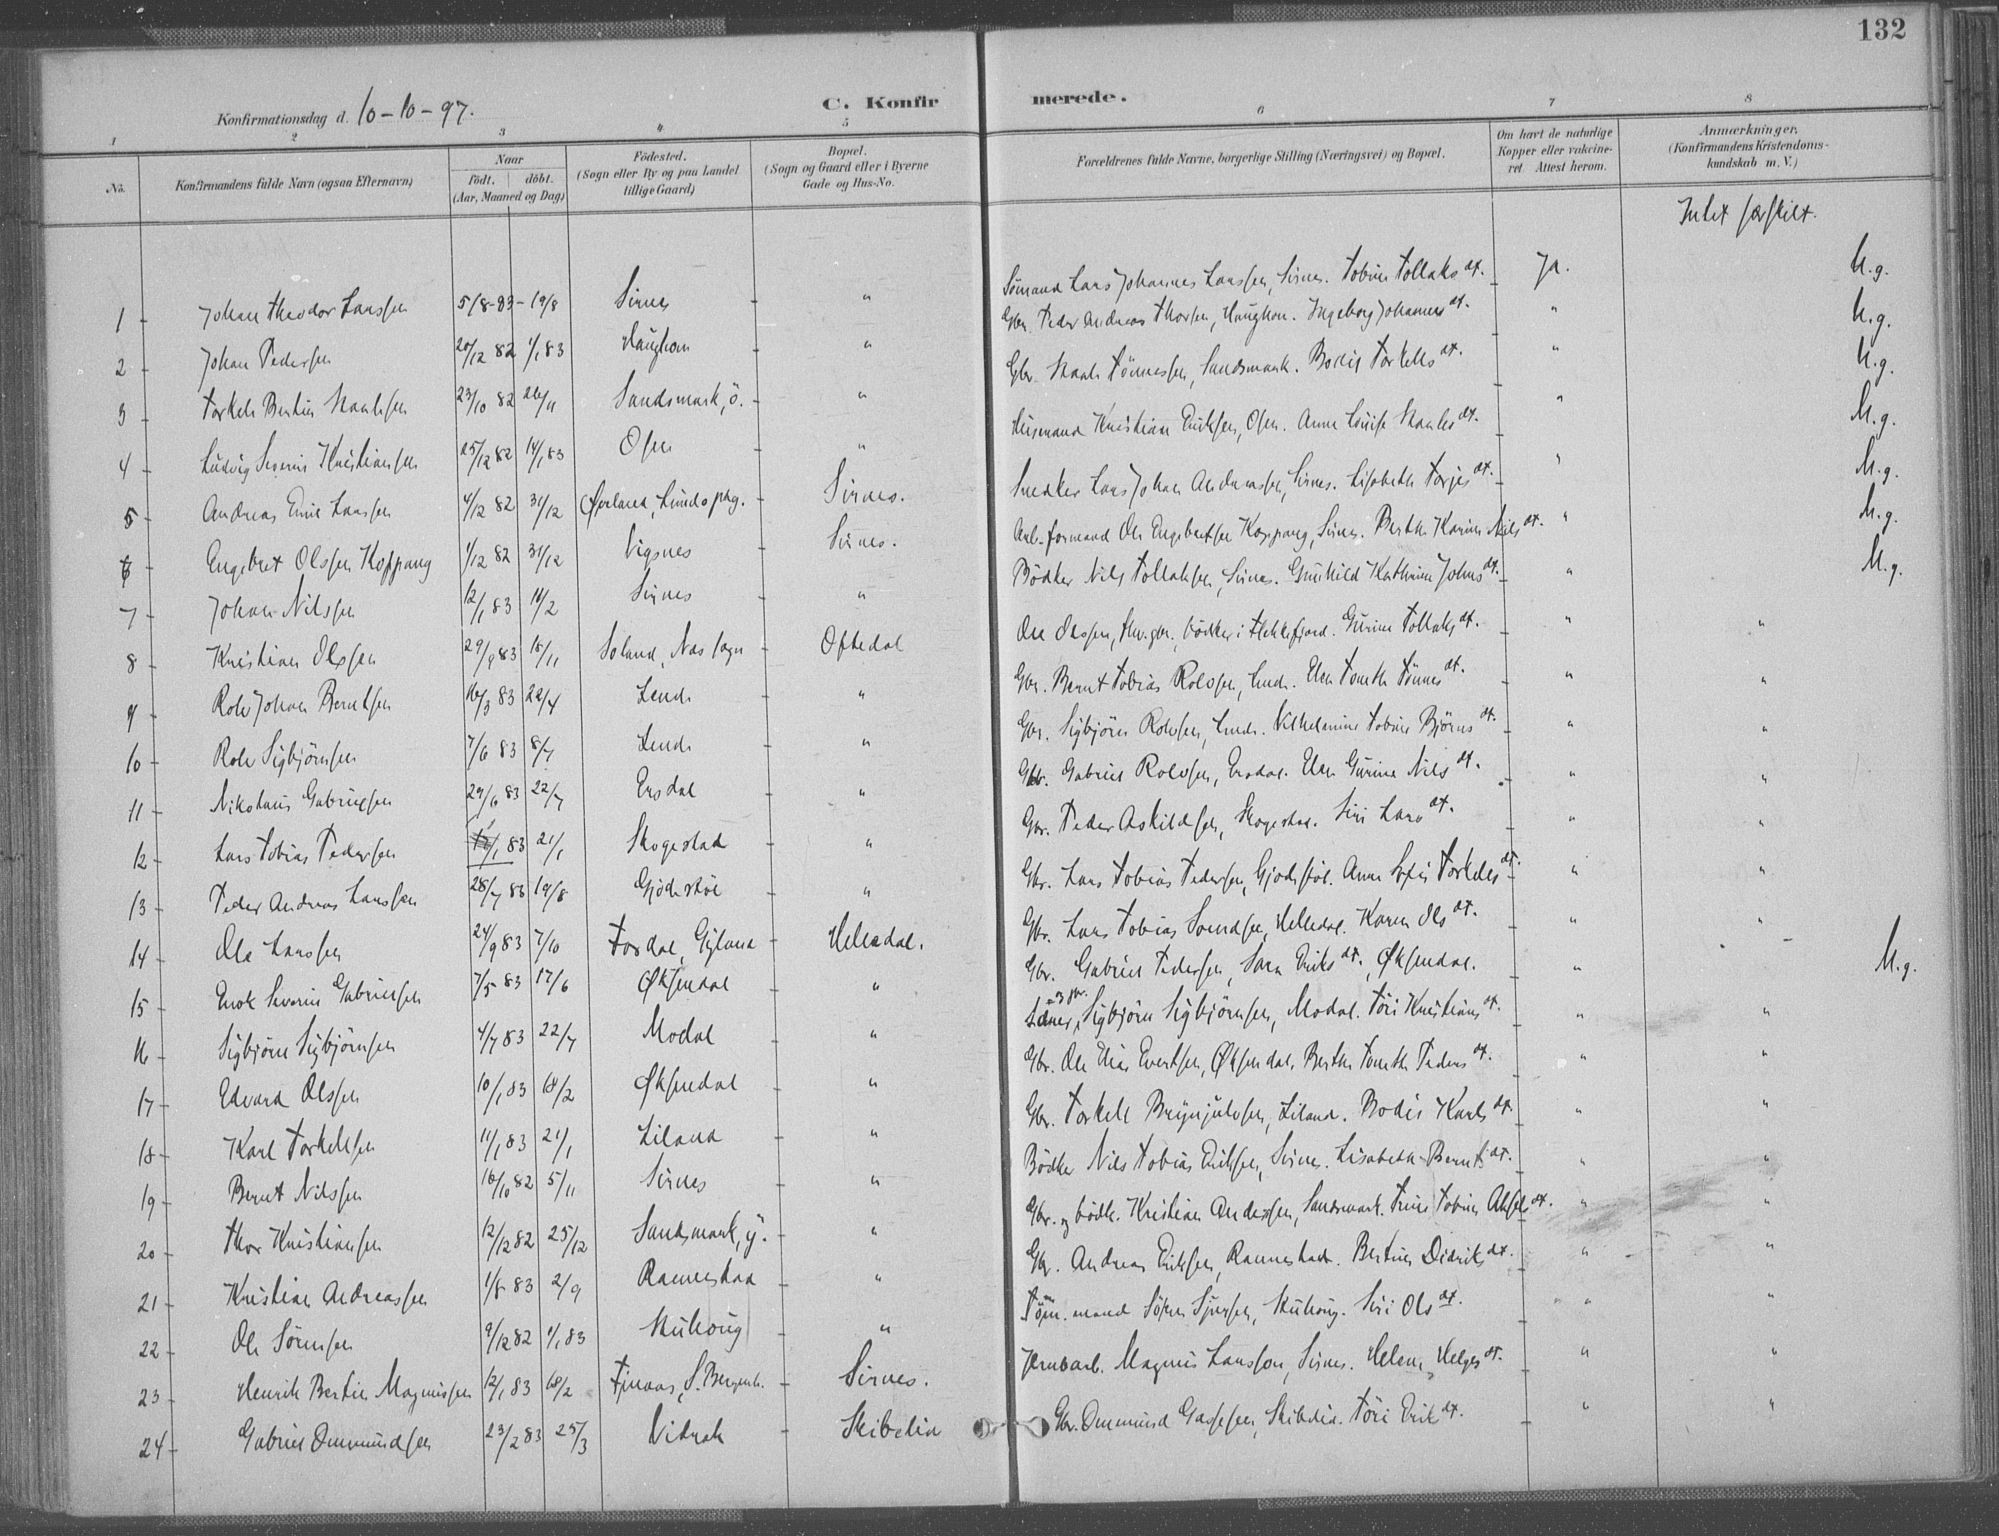 132
Konfirmationsdag d. 10-10-97.
C. Konfirmerede.
1 2 3 4 5 6 7 8
No. Konfirmandens fulde Navn (ogsaa Efternavn) Naar födt. döbt. (Aar, Maaned og Dag) Födested. (Sogn eller By og paa Landet tillige Gaard) Bopæl. (Sogn og Gaard eller i Byerne Gade og Hus-No. Forældrenes fulde Navne, borgerlige Stilling (Næringsvei) og Bopæl. Om havt de naturlige Kopper eller vakcineret. Attest herom. Anmærkninger. (Konfirmandens Kristendomskundskab m. V.)
Intet særskilt.
1 Johan Theodor Larssen 5/8-83 - 19/8 Sirnes " Sömand Lars Johannes Larssen, Sirnes. Tobine Tollaks dt. Ja. M.g.
2 Johan Pedersen 20/12 82 1/1 83 Haughom " Gbr. Peder Andreas Thorsen, Haughom. Ingeborg Johannes dt. " M.g.
3 Torkel Bertin 23/10 82 26/11 Sandsmark, ö. " Gbr. Tönnessen, Sandsmark. Bodil Torkels dt. " M.g.
4 Ludvig Severin Kristiansen 25/12 82 14/1 83 Osen " Husmand Kristian Eriksen, Osen. Anne Louise dt. " M.g.
5 Andreas Emil Larssen 4/12 82 31/12 Lunds pgd. Sirnes. Snedker Lars Johan Andreassen, Sirnes. Lisabeth Torjes dt. " M.g.
6 Engebret Olssen Koppang 1/12 82 31/12 Vigsnes Sirnes. Arb. formand Ole Engebretsen Koppang, Sirnes. Berthe Karine Nils dt. " M.g.
7 Johan Nilssen 12/1 83 11/2 Sirnes " Bödker Nils Tollaksen, Sirnes. Gunhild Kathrine Johns dt. " M.g.
8 Kristian Olssen 29/9 83 18/11 Soland, Nes sogn Oftedal Ole Olssen, bödker i Flekkefjord. Gurine Tollaks dt. " "
9 Rolv Johan Berntsen 16/3 83 22/4 Lend " Gbr. Bernt Tobias Rolvsen, Lende. Elen Tomth. Tönnes dt. " "
10 Rolv Sigbjörnsen 7/6 83 8/7 Lend " Gbr. Sigbjörn Rolvsen, Lende. Vilhelmine Tobine Björns dt. " "
11 Nikolaus Gabrielsen 29/6 83 22/7 Ersdal " Gbr. Gabriel Rolvsen, Ersdal. Elen Gurine Nils dt. " "
12 Lars Tobias Pedersen /1 83 21/1 Skogestad " Gbr. Peder Askildsen, Skogestad. Siri Lars dt. " "
13 Peder Andreas Larssen 28/7 83 19/8 Gjödestöl " Gbr. Lars Tobias Pedersen, Gjödestöl. Anne Sofie Torkels dt. " "
14 Ole Larssen 24/9 83 7/10 Tordal, Gyland Helledal. Gbr. Lars Tobias Svendsen, Helledal. Karen Ols dt. " "
15 Enok Severin Gabrielsen 7/5 83 17/6 Øksendal " Gbr. Gabriel Pedersen, Sara Eriks dt., Øksendal. " M.g.
16 Sigbjörn Sigbjörnsen 4/7 83 22/7 Modal " Sigbjörn Sigbjörnsen, Modal. Töri Kristians dt. " "
17 Edvard Olssen 10/1 83 18/2 Øksendal " Gbr. Ole Elias Evertsen, Øksendal. Berthe Tomth. Peders dt. " "
18 Karl Torkelsen 11/1 83 21/1 Liland " Gbr. Torkell Brynjulvsen, Liland. Bodil Karls dt. " "
19 Bernt Nilssen 16/10 82 5/11 Sirnes " Bödker Nils Tobias Eriksen, Sirnes. Lisabeth Bernts dt. " "
20 Thor Kristiansen 12/12 82 25/12 Sandsmark, y. " Gbr. og bödk. Kristian Anderssen, Sandsmark. Trine Tobine Aksels dt. " "
21 Kristian Andreassen 1/8 83 2/9 Rannestad " Gbr. Andreas Eriksen, Rannestad. Bertine Didriks dt. " "
22 Ole Sörensen 9/12 82 1/1 83 " Töm. mand Sören Siri Ols dt. " "
23 Henrik Bertin Magnussen 12/1 83 18/2 S. Bergenh. Sirnes. Jernbarb. Magnus Larsson, Sirnes. Helene Helges dt. " "
24 Gabriel Ommundsen 23/2 83 25/3 Vidrak Skibelia Gbr. Ommund Skibelia. Töri Erik dt. " "